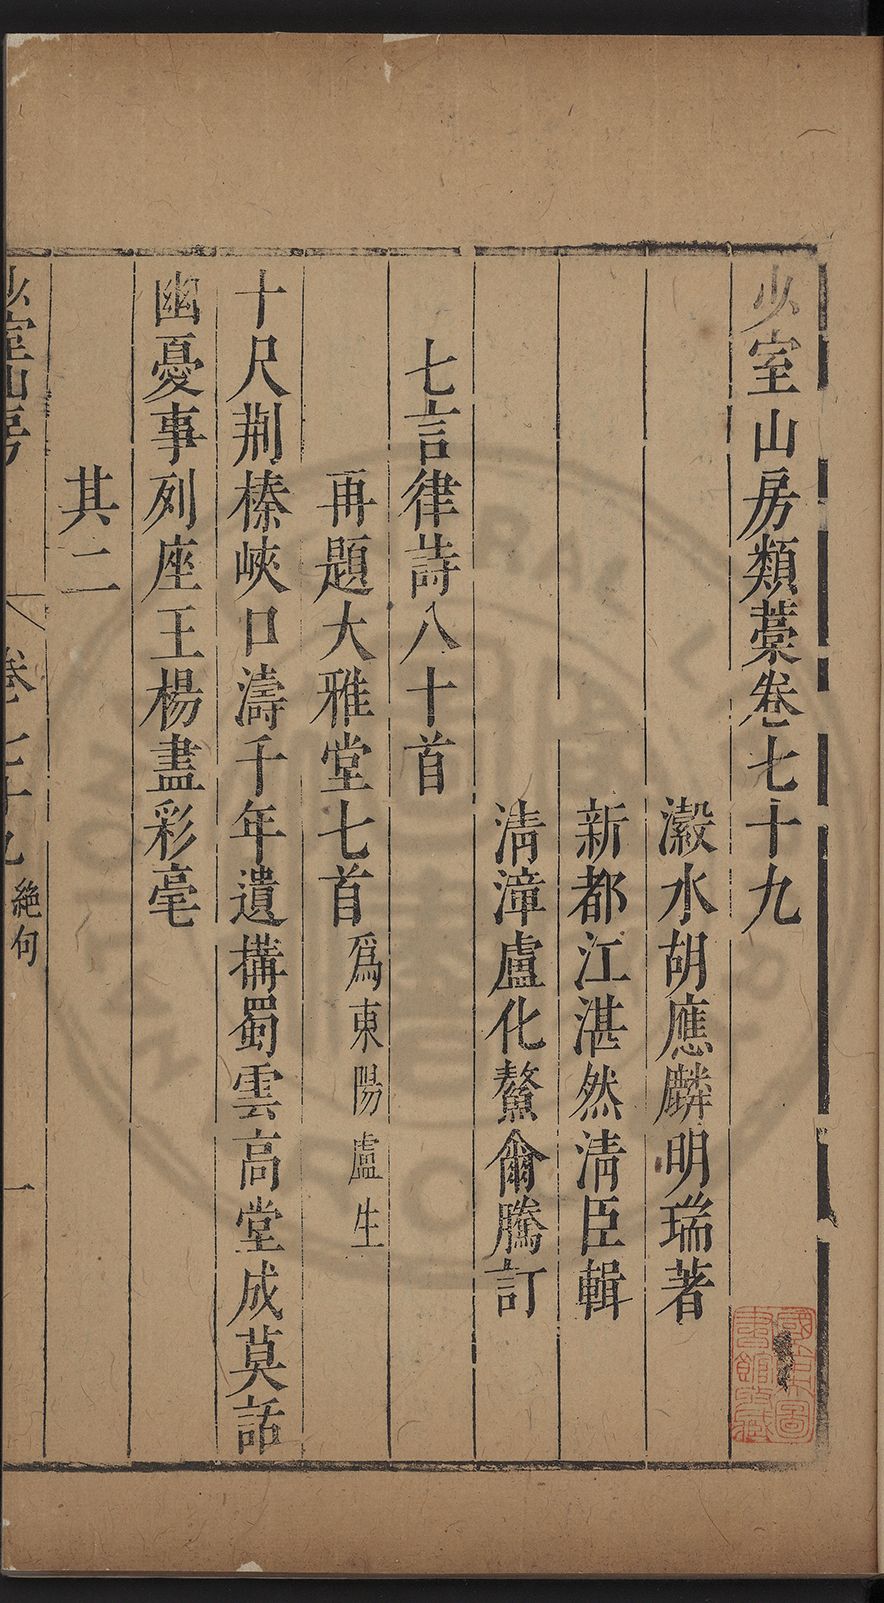 少室山房類藁卷七十九
瀫水胡應麟明瑞著
新都江湛然淸臣輯
淸漳盧化鰲爾騰訂
七言律詩八十首
再題大雅堂七首爲東陽盧生
十尺荆榛峽口濤千年遺搆蜀雲高堂成莫話
幽憂事列座王楊盡彩毫
其二
少室山房
卷七十九
絶句
一
國立圖
書館藏